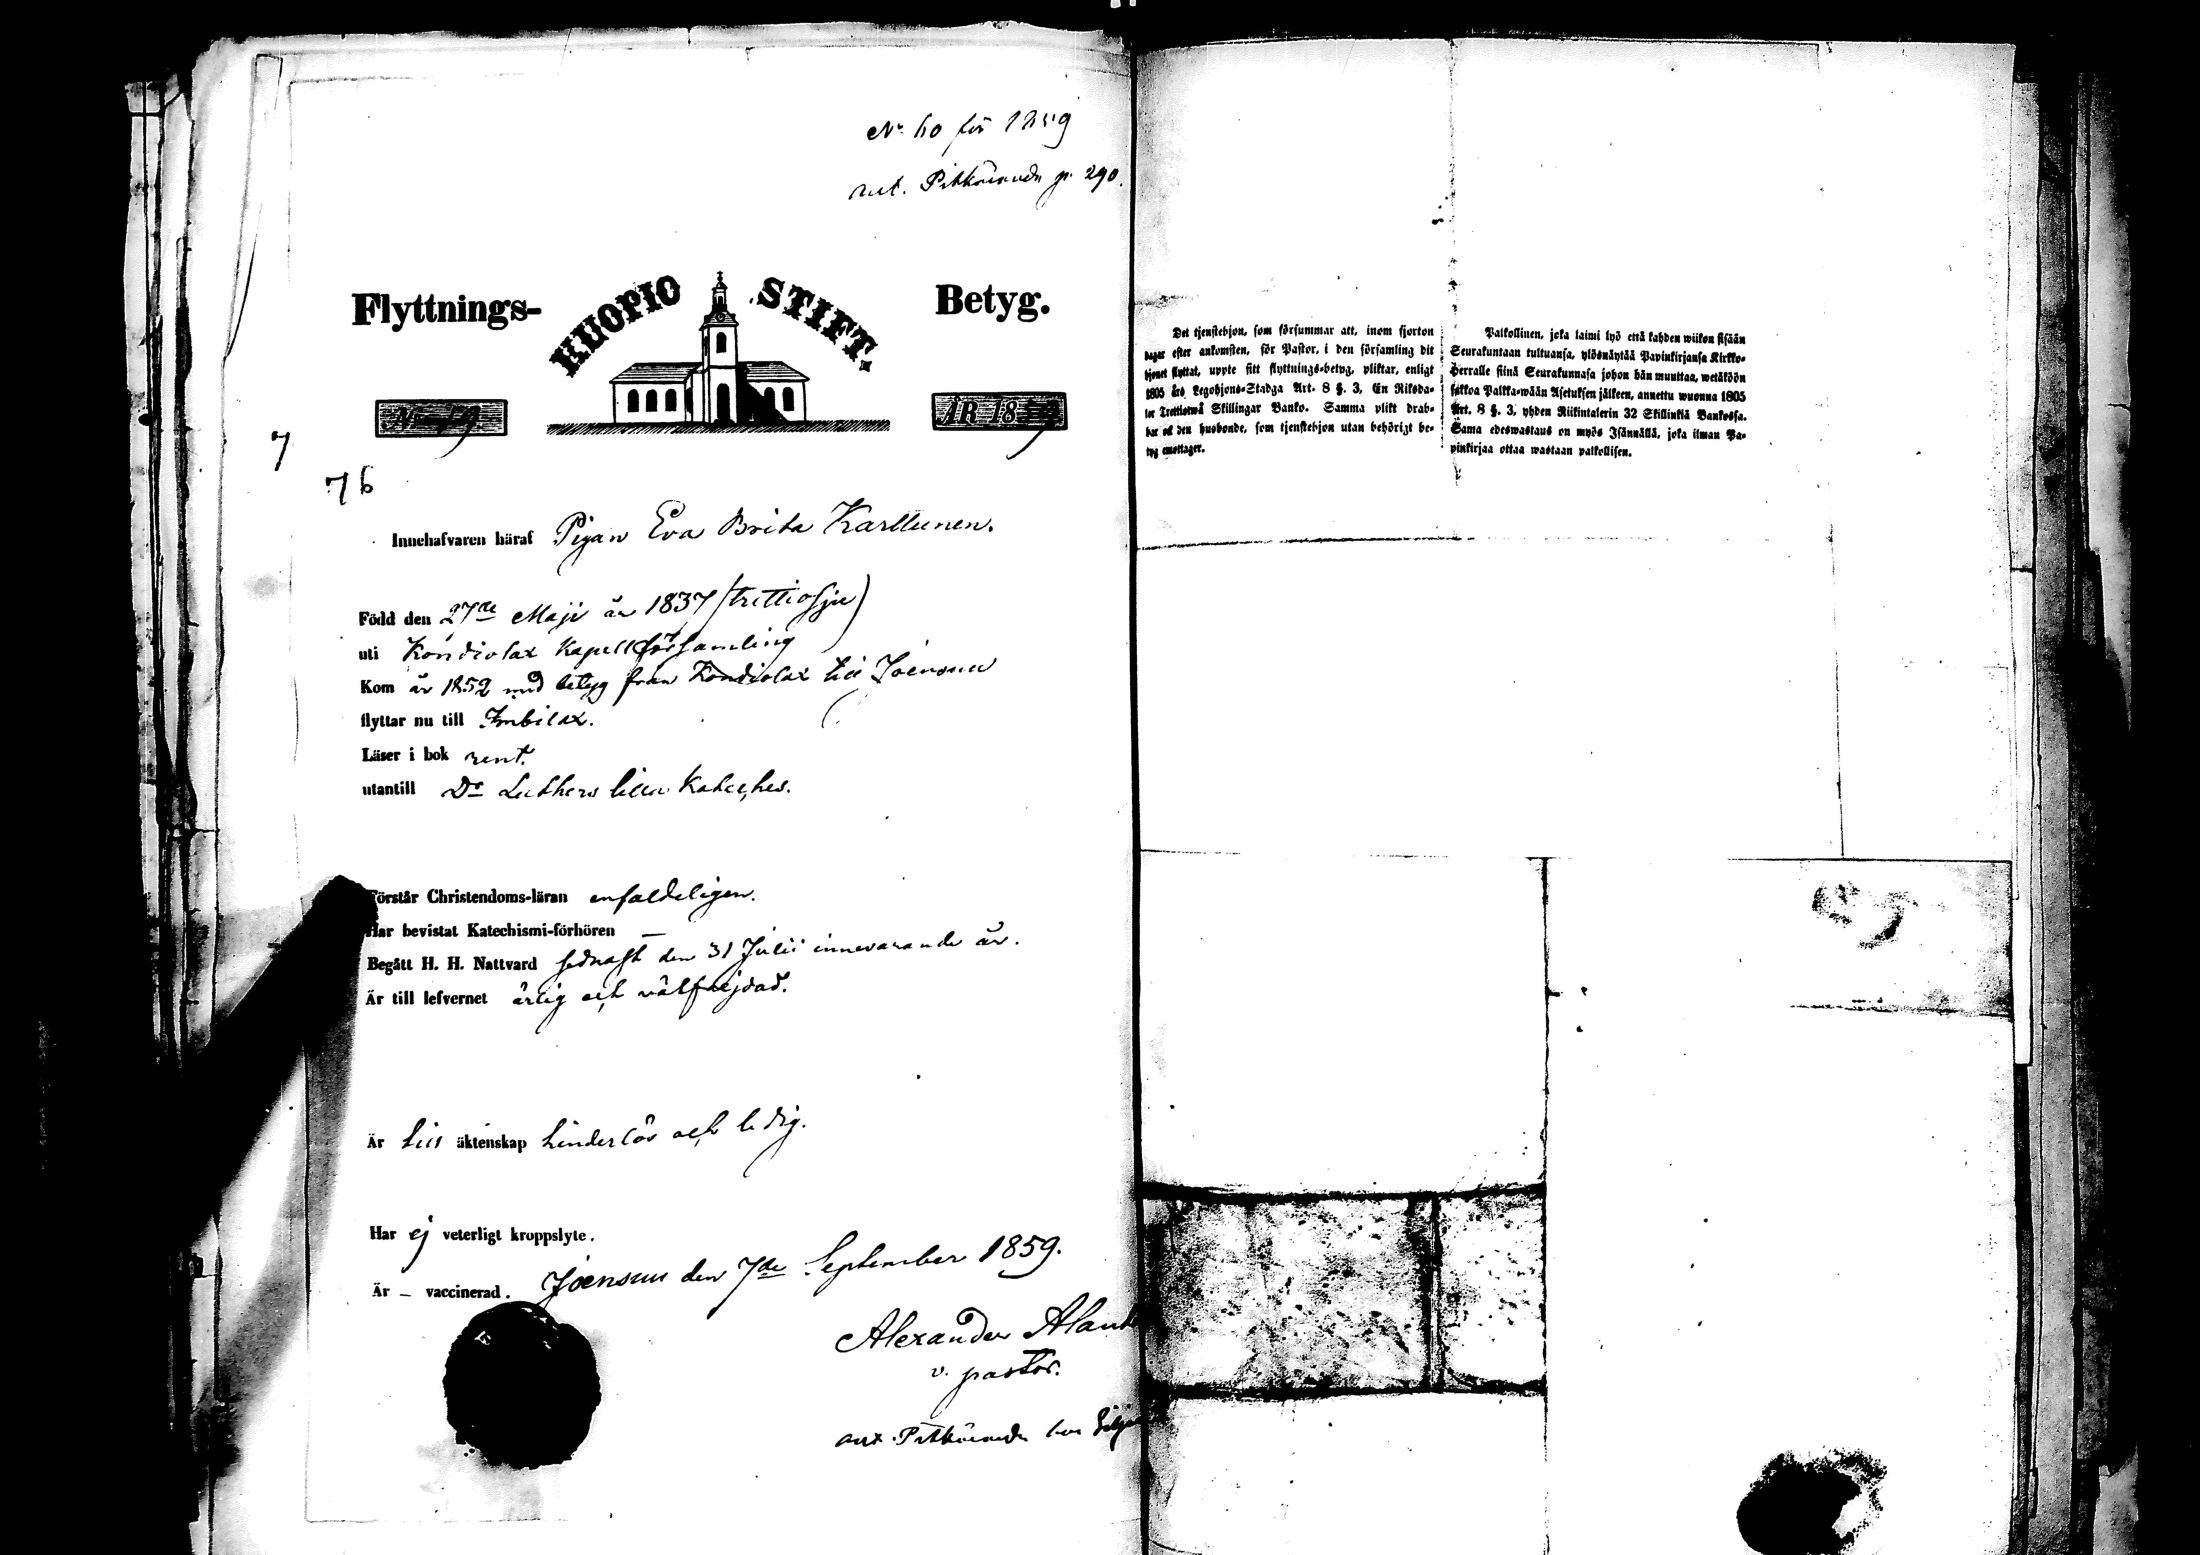 No 60 för 1859
ant. Pitkäranda p. 290.
Flyttnings- HUOPIO STIFT. Betyg.
No 59 ÅR 1859
7
76
Innehafvaren häraf Pigan Eva Brita Karttunen.
Född den 27de Maji år 1837 (trettiosju)
uti Kondiolax Kapellförsamling
Kom år 1852 med betyg från Kondiolax till Joensuu
flyttar nu till Imbilax.
Läser i bok rent.
utantill Dr Luthers lilla Kateches.
Förstår Christendoms-läran enfaldeligen.
Har bevistat Katechismi-förhören —
Begått H. H. Nattvard sednast den 31 Julii innevarande år.
Är till lefvernet ärlig och välfrejdad.
Är till äktenskap hinderlös och ledig.
Har ej veterligt kroppslyte.
Är – vaccinerad. Joensuu den 7de September 1859.
Alexander
v. pastor.
Pitkäranda
Det tjenstehjon, som försummar att, inom fjorton
dagar efter ankomsten, för Pastor, i den församling dit
hjonet flyttat, uppte sitt flyttnings-betyg, pliktar, enligt
1805 års Legohjons-Stadga Art. 8 §. 3, En Riksda-
ler Trettiotwå Skillingar Banko. Samma plikt drab-
bar ock den husbonde, som tjenstehjon utan behörigt be-
tyg emottager.
Palkollinen, joka laimi lyö että kahden wiikon sisään
Seurakuntaan tultuansa, ylösnäytää Papinkirjansa Kirkko-
Herralle siinä Seurakunnasa johon hän muuttaa, wetäköön
sakkoa Palkka-wään Asetuksen jälkeen, annettu wuonna 1805
Art. 8 §. 3, yhden Riikintalerin 32 Skillinkiä Bankossa.
Sama edeswastaus on myös Isännällä, joka ilman Pa-
pinkirjaa ottaa wastaan palkollisen.